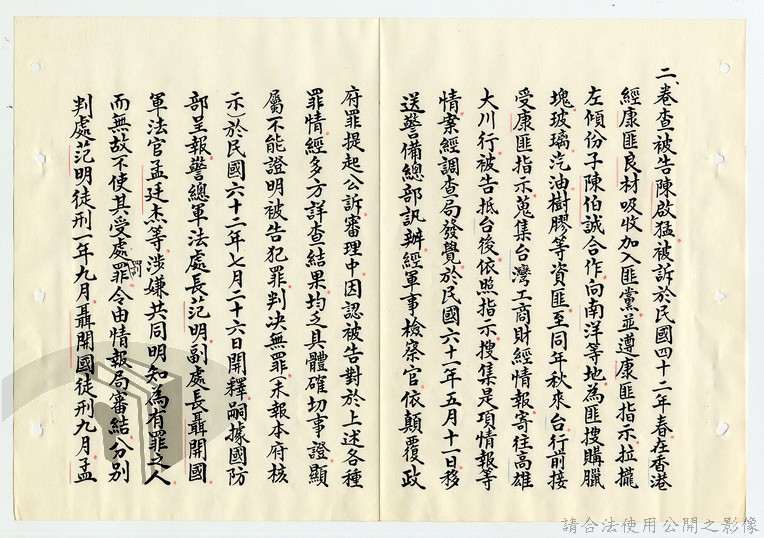 二、卷查被告陳啟猛被訴於民國四十二年春在香港
經康匪良材吸收加入匪黨並遵康匪指示拉攏
左傾份子陳伯誠合作向南洋等地為匪搜購臘
塊玻璃汽油樹膠等資匪至同年秋來台行前接
受康匪指示蒐集台灣工商財經情報寄往高雄
大川行被告抵台後依照指示搜集是項情報等
情案經調查局發覺於民國六十一年五月十一日移
送警備總部訊辦經軍事檢察官依顛覆政
府罪提起公訴審理中因認被告對於上述各種
罪情經多方詳查結果均乏具體確切事證顯
屬不能證明被告犯罪判決無罪(未報本府核
示)於民國六十二年七月二十六日開釋嗣據國防
部呈報警總軍法處長范明副處長聶開國
軍法官孟廷杰等涉嫌共同明知為有罪之人
而無故不使其受處罰令由情報局審結分別
判處范明徒刑一年九月聶開國徒刑九月孟
請合法使用公開之影像